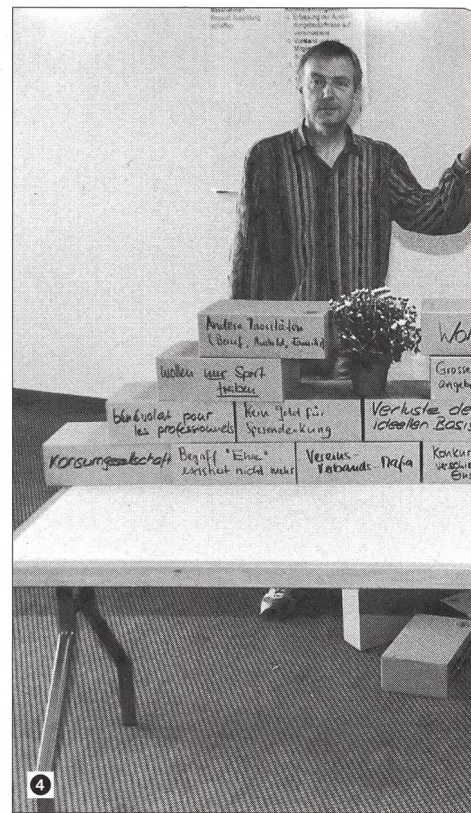 schaffen
Andere Prioritäten
(Beruf, Ausbild, Familie)
Wollen nur Sport
treiben
Grosse
angeb
bénévolat pour
les professionnels
Kein Geld für
Spesendeckung
Verluste de
ideellen Basis
Konsumgesellschaft
Begriff "Ehre"
existiert nicht mehr
Vereins-
Verbands-Mafia
Konkur
verschie
Eins
4